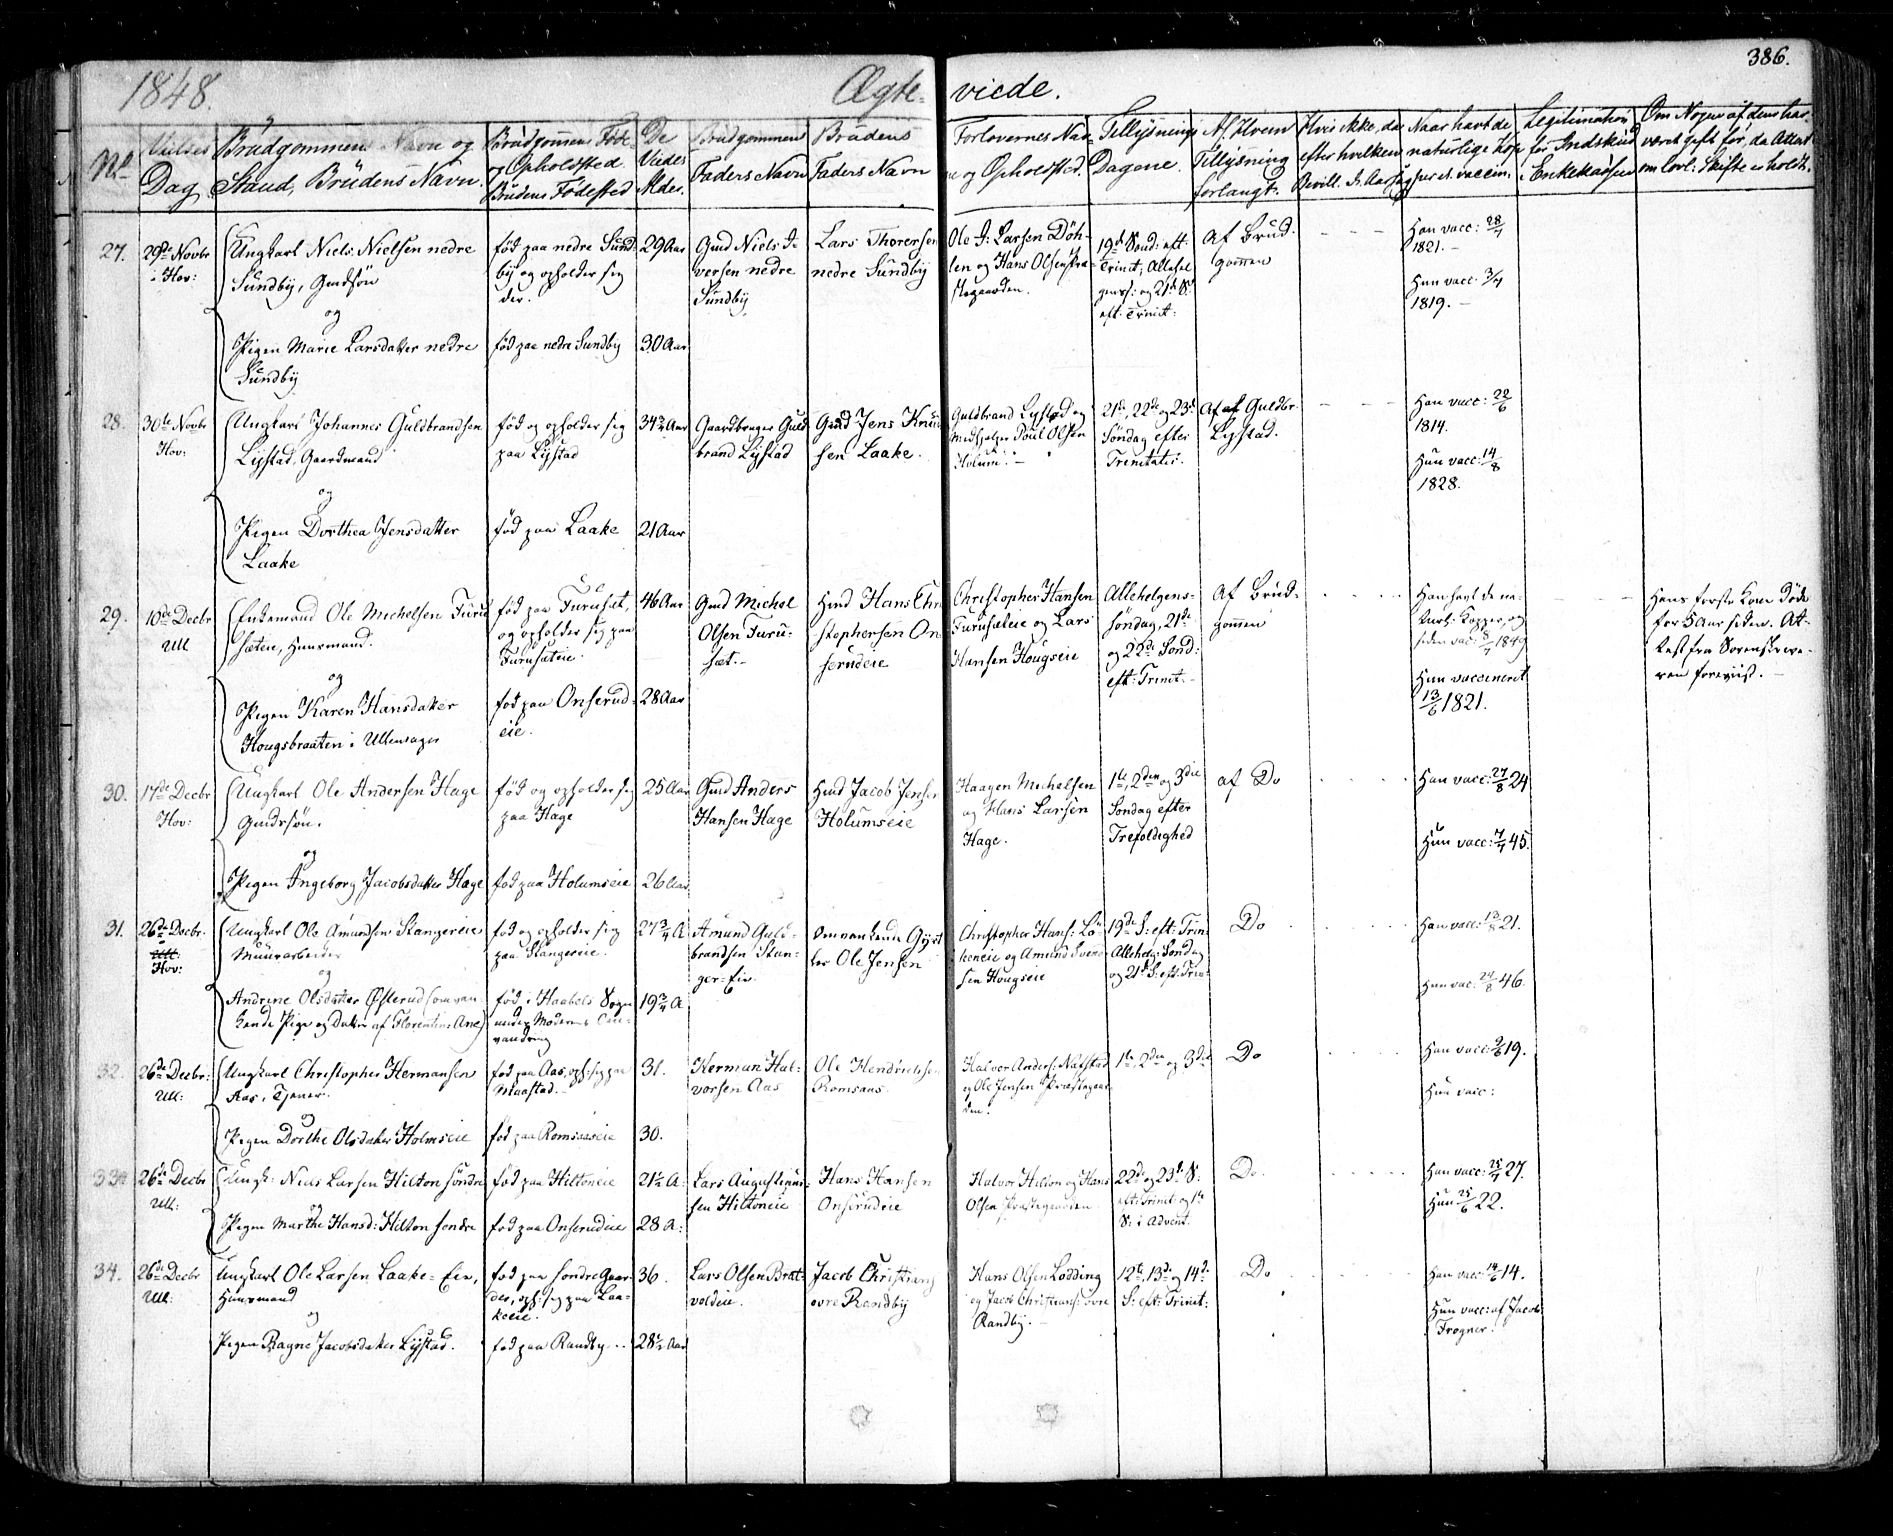 386.
1848. Ægte- viede.
No. Vielses Dag
Brudgommens Navn og Stand, Brudens Navn.
Brudgommens Føde- og Opholdsted Brudens Fødested
De Viedes Alder.
Brudgommens Faders Navn
Brudens Faders Navn
Forlovernes Navne og Opholdsted.
Tillysnings Dagene.
Af Hvem Tillysning forlangt.
Hvis ikke, da efter hvilken Bevill.
Naar havt de naturlige Kop
Legitimation for Indskud i Enkekassen
Om Nogen af dem har været gift før, da Attest om lovl: Skifte er holdt.
27.
29de Novbr
Hov:
Ungkarl Niels Nielsen nedre
Sundby, Gmdsøn
og
Pigen Marie Larsdatter nedre
Sundby
fød paa nedre Sund
by og opholder sig
der.
fød paa nedre Sundby
29 Aar
30 Aar
Gmd Niels I-
versen nedre
Sundby
Lars Thoresen
nedre Sundby
Ole I: Larsen Døh-
len og Hans Olsen Præ-
stegaarden.
19de Sønd: eft:
Trinit; Allehel
genss: og 21de S:
eft. Trinit:
Af Brud-
gommen
Han vacc: 28/7
1821.-
Hun vacc: 3/7
1819.-
28.
30te Novbr
Hov:
Ungkarl Johannes Guldbrandsen
Lystad, Gaardmand
og
Pigen Dorthea Jensdatter
Laake
fød og opholder sig
paa Lystad
fød paa Laake
34 1/2 Aar
21 Aar
Gaardbruger Guld
brand Lystad
Gmd Jens Knud
sen Laake.
Guldbrand Lystad og
Medhjelper Poul Olsen
Holum.-
21de, 22de og 23de
Søndag efter
Trinitatis.
Af Guldbr.
Lystad.
Han vacc: 22/6
1814.
Hun vacc: 14/8
1828.
29.
10de Decbr
Ull
Enkemand Ole Michelsen Furu
sæteie, Huusmand.
og
Pigen Karen Hansdatter
Hougsbraaten i Ullensager
fød paa Furuset,
og opholder sig paa
Furuseteie.
fød paa Onserud-
eie.
46 Aar
28 Aar
Gmd Michel
Olsen Furu-
sæt.-
Hmd Hans Chri
stophersen On
serudeie
Christopher Hansen
Furusæteie og Lars
Hansen Hougseie
Allehelgens-
søndag, 21de
og 22de Sønd:
eft: Trinit:-
Af Brud-
gommen
Han havt de na-
turl: Kopper, og
siden vac: 8/7 1849
Hun vaccineret
13/6 1821.
Hans første Kone døde
for 5 Aar siden. At-
test fra Sorenskrive-
ren foreviist.-
30.
17de Decbr
Hov:
Ungkarl Ole Andersen Hage
Gmdssøn.
og
Pigen Ingeborg Jacobsdatter Hage
fød og opholder sig
paa Hage
fød paa Holumseie
25 Aar
26 Aar
Gmd Anders
Hansen Hage
Hmd Jacob Jensen
Holumseie
Haagen Michelsen
og Hans Larsen
Hage.
1ste, 2den og 3die
Søndag efter
Trefoldighed
af Do
Han vacc: 27/8 24
Hun vacc: 7/7 45.
31.
26de Decbr.
Ull:
Hov:
Ungkarl Ole Amundsen Stangereie
Muurarbeider
og
Andrine Olsdatter Østerud (omvan-
kende Pige og Datter af Florentine Ane)
fød og opholder sig
paa Stangereie.
fød i Haabels Sogn
under Moderens Om-
vandring
27 3/4 A
19 3/4 A
Amund Guld-
brandsen Stan-
ger-Eie
Omvankende Gjørt
ler Ole Jensen
Christopher Hans: Lø
keneie og Amund Svend
sen Hougseie
19de S: eft: Trin:
Allehelg: Søndag
og 21de S: eft: Trin:
Do
Han vacc: 13/8 21.
Hun vac: 24/8 46.
32.
26de Decbr:
Ull:
Ungkarl Christopher Hermansen
Aas, Tjener.
og
Pigen Dorthe Olsdatter Holmseie
fød paa Aas, oph: sig paa
Maastad.-
fød paa Romsaaseie
31.
30.
Herman Hal-
vorsen Aas
Ole Hendrichsen
Romsaas
Halvor Anders: Nafstad
og Ole Jensen Præstegaar
den.
1ste, 2den og 3die
Do
Han vacc: 2/6 19.
Hun vacc:
33.
26de Decbr
Ull:
Ungk: Niels Larsen Hilton søndre
og
Pigen Marthe Hansd: Hilton søndre
fød paa Hiltoneie
fød paa Onserudeie
21 1/2 A:
28 A:
Lars Augustinus-
sen Hiltoneie
Hans Hansen
Onserudeie
Halvor Hilton og Hans
Olsen Præstegaarden
22de og 23de S:
eft: Trinit og 1ste
S: i Advent.
Do
Han vacc: 25/7 27.
Hun 25/6 22.
34.
26de Decbr
Ull:
Ungkarl Ole Larsen Laake-Eie,
Huusmand
og
Pigen Ragne Jacobsdatter Lystad.
fød paa søndre Gaar
der, oph: sig paa Laa-
keeie.
fød paa Randby...
36.
28 1/2 Aar
Lars Olsen Brat-
voldeie.
Jacob Christians
øvre Randby
Hans Olsen Lødding
og Jacob Christians: øvre
Randby.-
12te, 13de og 14de
S: eft: Trinit:
Do
Han vacc: 14/6 14.
Hun vacc: af Jacob
Frogner.